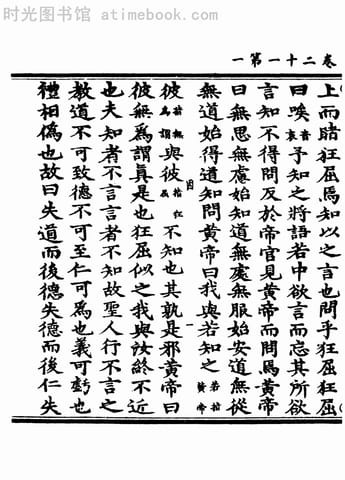 时光图书馆 - atimebook.com
卷二十一第一
上而睹狂屈焉知以之言也問乎狂屈狂屈
曰唉音哀予知之將語若中欲言而忘其所欲
言知不得問反於帝官見黃帝而問焉黃帝
曰無思無慮始知道無處無服始安道無從
無道始得道知問黃帝曰我與若知之若指黃帝
一
彼指無為謂與彼指狂屈不知也其孰是邪黃帝曰
彼無為謂真是也狂屈似之我與汝終不近
也夫知者不言言者不知故聖人行不言之
教道不可致德不可至仁可為也義可虧也
禮相偽也故曰失道而後德失德而後仁失